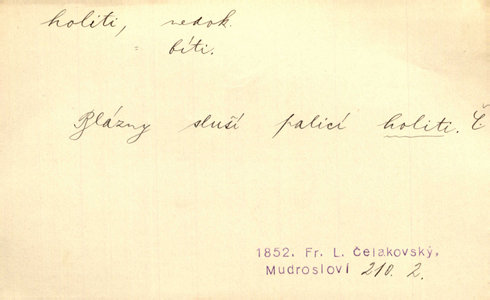 holiti, nedok.
= bíti.
Blázny sluší palicí holiti. Č
1852. Fr. L. Čelakovský,
Mudrosloví 210. 2.